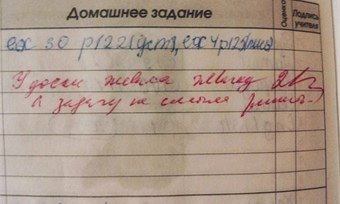 Домашнее задание
Оценка
Подпись учителя
ex 30 p122(уст), ex 4 p123(письм)
У доски жевала жвачку
А задачу не смогла решить.